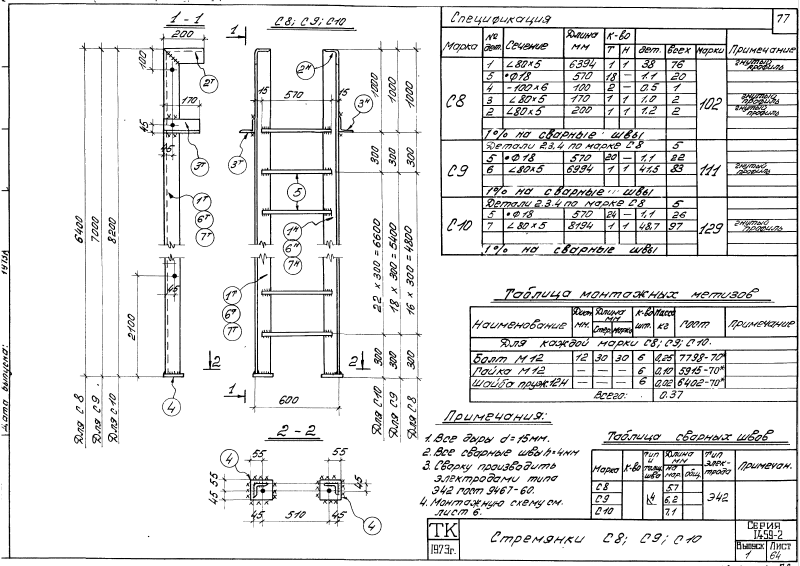 1-1
С8; С9; С10
200
100
2т
170
45
45
3т
1т
6т
7т
45
2100
6400
7000
8200
Для С8
Для С9
Для С10
Дата выпуска:
1
2н
15
570
15
3н
3т
5
1н
6н
7н
1т
6т
7т
2
2
4
1
600
1000
1000
1000
300
300
300
22 х 300 = 6600
18 х 300 = 5400
16 х 300 = 4800
300
300
300
Для С10
Для С9
Для С8
2-2
55
55
4
55
45
45
45
510
45
4
Спецификация
77
Марка № дет. Сечение Длина мм К-во Т Н дет. всех марки Примечание
С8
1 L80×5 6394 1 1 38 76 гнутый профиль
5 •Ф18 570 18 — 1.1 20
4 -100×6 100 2 - 0.5 1
3 L80×5 170 1 1 1.0 2 гнутый профиль
2 L80×5 200 1 1 1.2 2 гнутый профиль
102
1% на сварные швы
С9
Детали 2.3.4 по марке С8 5
5 •Ф18 570 20 — 1.1 22
6 L80×5 6994 1 1 41.5 83 гнутый профиль
111
1% на сварные швы
С10
Детали 2.3.4 по марке С8 5
5 •Ф18 570 24 — 1.1 26
7 L80×5 8194 1 1 48.7 97 гнутый профиль
129
1% на сварные швы
Таблица монтажных метизов
Наименование мм. Длина мм Стер. марка К-во шт. Масса кг ГОСТ Примечание
Для каждой марки С8; С9; С10.
Болт М12 12 30 30 6 0,25 7798-70*
Гайка М12 — — — 6 0,10 5915-70*
Шайба пруж.12Н — — — 6 0.02 6402-70*
Всего: 0.37
Примечания:
1. Все дыры d=15мм.
2. Все сварные швы h=4мм
3. Сварку производить
электродами типа
Э42 гост 9467-60.
4. Монтажную схему см.
лист 6.
Таблица сварных швов
Марка К-во Тип и толщ. шва Длина мм на мар. общ. Тип электрода Примечан.
С8 5.7
С9 4 6,2 Э42
С10 7.1
ТК
1973г.
Стремянки С8; С9; С10
Серия
1.459-2
Выпуск 1
Лист 64